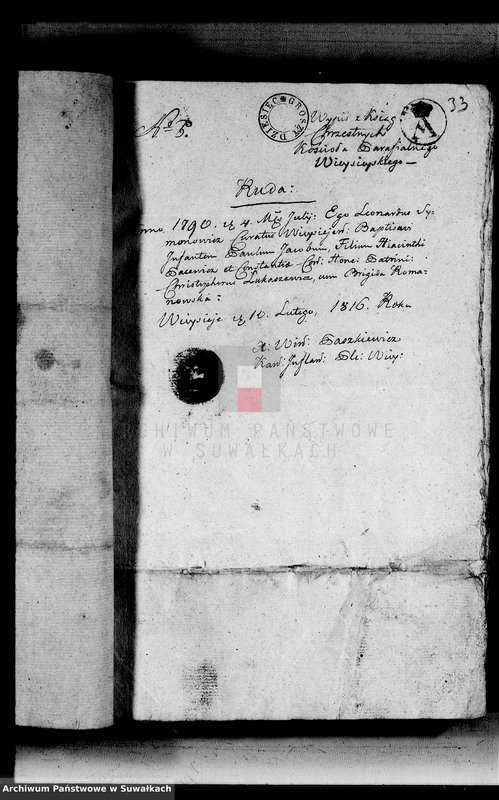 33
DZIESIĘC GROSZY
No 3.
Wypis z Xiąg
Chrzestnych
Kościoła Parafialnego
Wieysieyskiego —
Ruda:
nno 1790. d. 4 Ms July: Ego Leonardus Sy=
monowicz Curatus Wieysiejen: Baptisavi
Infantem Paulum Jacobum, Filium Hiacinthi
et Constantia Con: Patrini:
Christophorus Łukaszewicz, cum Brigida Roma=
nowska:
Wieysieje d. 10. Lutego, 1816. Roku
X: Win: Paszkiewicz
Kan: Inflan: Ple: Wiey:
ARCHIWUM PAŃSTWOWE
W SUWAŁKACH
Archiwum Państwowe w Suwałkach